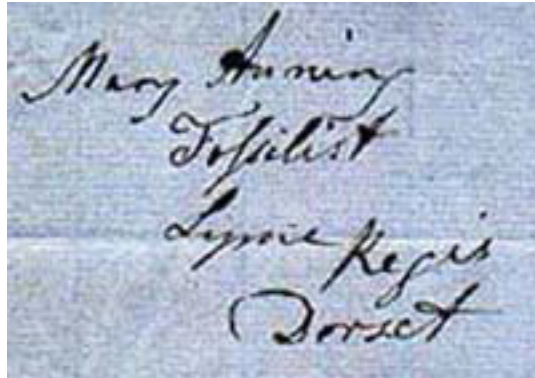 Mary Anning
Fossilist
Lyme Regis
Dorset